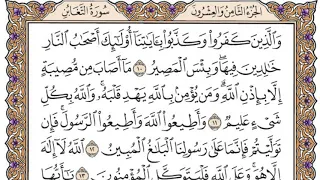 الجزء الثامن والعشرون سورة التغابن
وَالَّذِينَ كَفَرُوا وَكَذَّبُوا بِآيَاتِنَا أُولَٰئِكَ أَصْحَابُ النَّارِ
خَالِدِينَ فِيهَا وَبِئْسَ الْمَصِيرُ ١٠ مَا أَصَابَ مِن مُّصِيبَةٍ
إِلَّا بِإِذْنِ اللَّهِ وَمَن يُؤْمِن بِاللَّهِ يَهْدِ قَلْبَهُ وَاللَّهُ بِكُلِّ
شَيْءٍ عَلِيمٌ ١١ وَأَطِيعُوا اللَّهَ وَأَطِيعُوا الرَّسُولَ فَإِن
تَوَلَّيْتُمْ فَإِنَّمَا عَلَىٰ رَسُولِنَا الْبَلَاغُ الْمُبِينُ ١٢ اللَّهُ لَا إِلَٰهَ
إِلَّا هُوَ وَعَلَى اللَّهِ فَلْيَتَوَكَّلِ الْمُؤْمِنُونَ ١٣ يَا أَيُّهَا